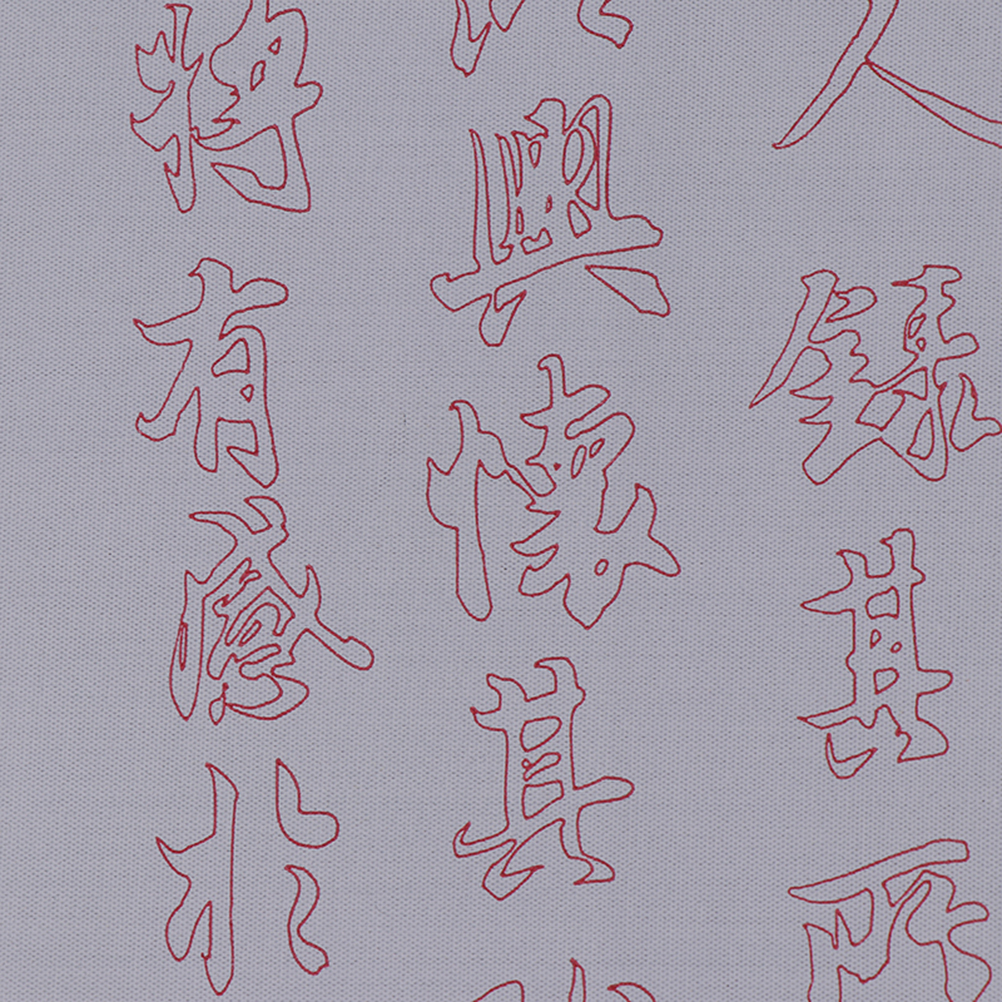 人錄其所
興懷其
將有感於